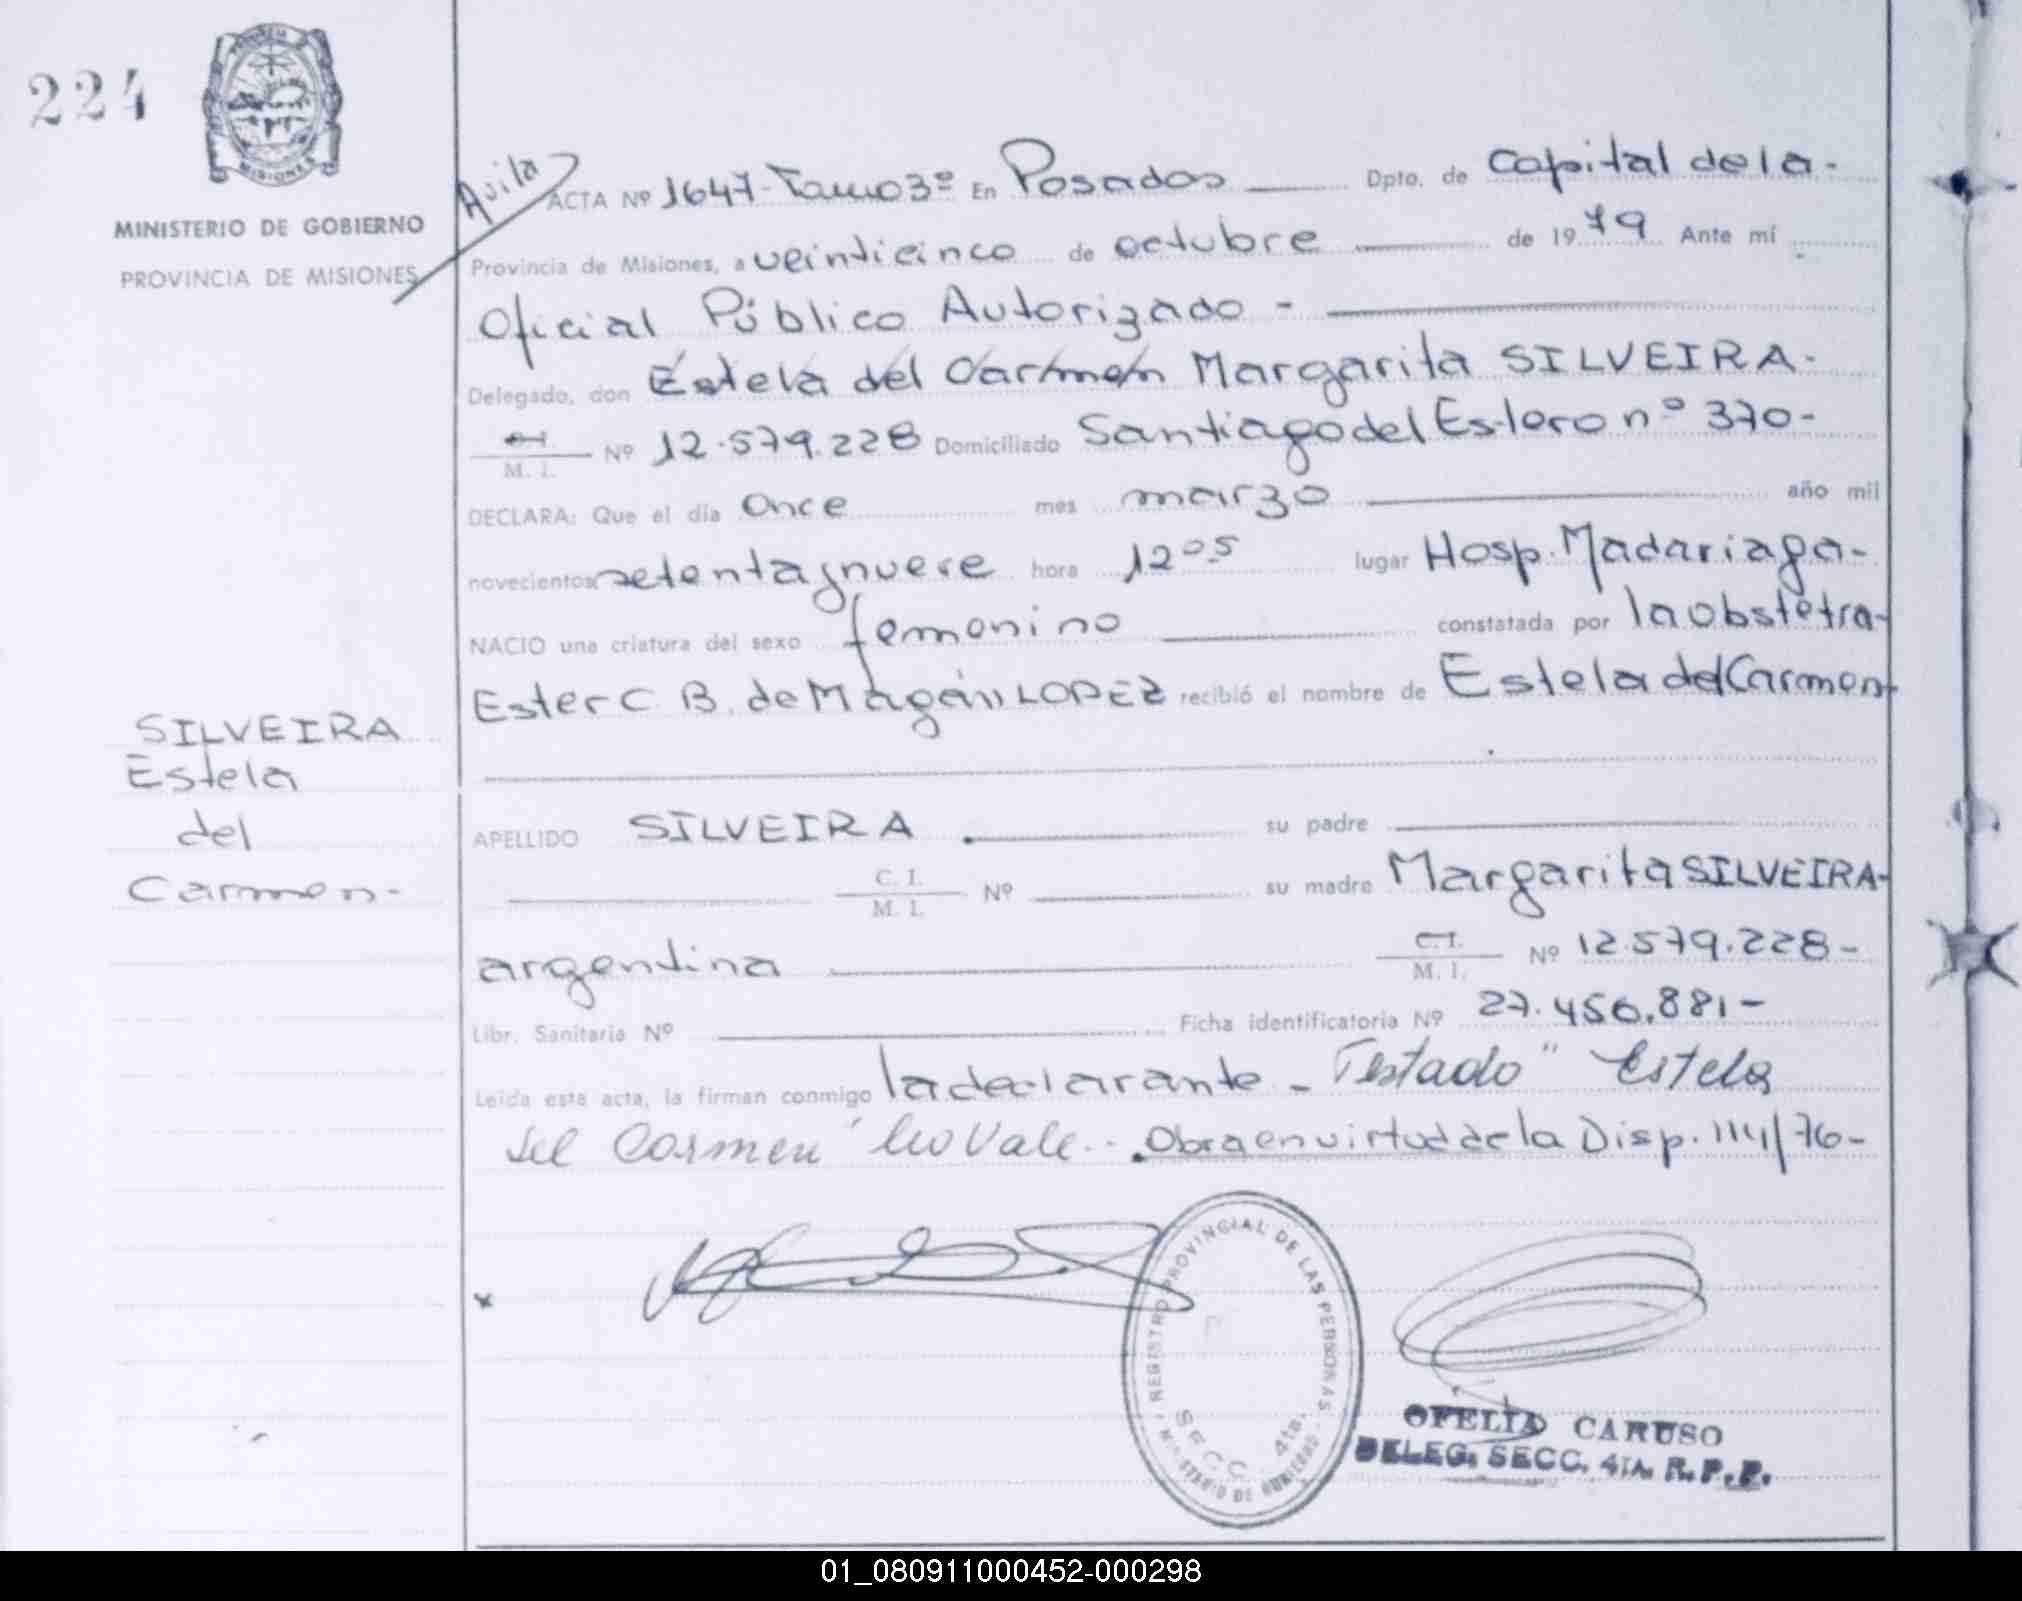 224
PROVINCIA DE
MISIONES
MINISTERIO DE GOBIERNO
PROVINCIA DE MISIONES
Avila
ACTA Nº 1647-Tomo 3º En Posadas Dpto. de Capital de la-
Provincia de Misiones, a veinticinco de octubre de 1979 Ante mí
Oficial Público Autorizado -
Delegado, don Estela del Carmen Margarita SILVEIRA-
C.I. / M. I. Nº 12.579.228 Domiciliado Santiago del Estero nº 370-
DECLARA: Que el día once mes marzo año mil
novecientos setenta y nueve hora 12 05 lugar Hosp. Madariaga-
NACIO una criatura del sexo femenino constatada por la obstetra-
Ester C. B. de Magán LOPEZ recibió el nombre de Estela del Carmen-
SILVEIRA
Estela
del
Carmen-
APELLIDO SILVEIRA su padre
C. I. / M. I. Nº su madre Margarita SILVEIRA-
argentina C. I. / M. I. Nº 12.579.228-
Libr. Sanitaria Nº Ficha identificatoria Nº 27.456.881-
Leída esta acta, la firman conmigo la declarante - Testado " Estela
del Carmen" No Vale.- Obra en virtud de la Disp. 114/76-
REGISTRO PROVINCIAL DE LAS PERSONAS
SECC. 4ta.
MINISTERIO DE GOBIERNO
OFELIA CARUSO
DELEG. SECC. 4TA. R. P. P.
01_080911000452-000298